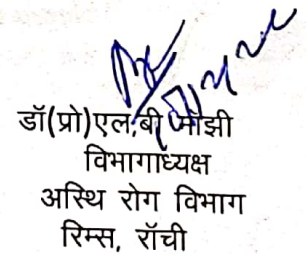 डॉ(प्रो)एल.बी मांझी
विभागाध्यक्ष
अस्थि रोग विभाग
रिम्स, रॉची